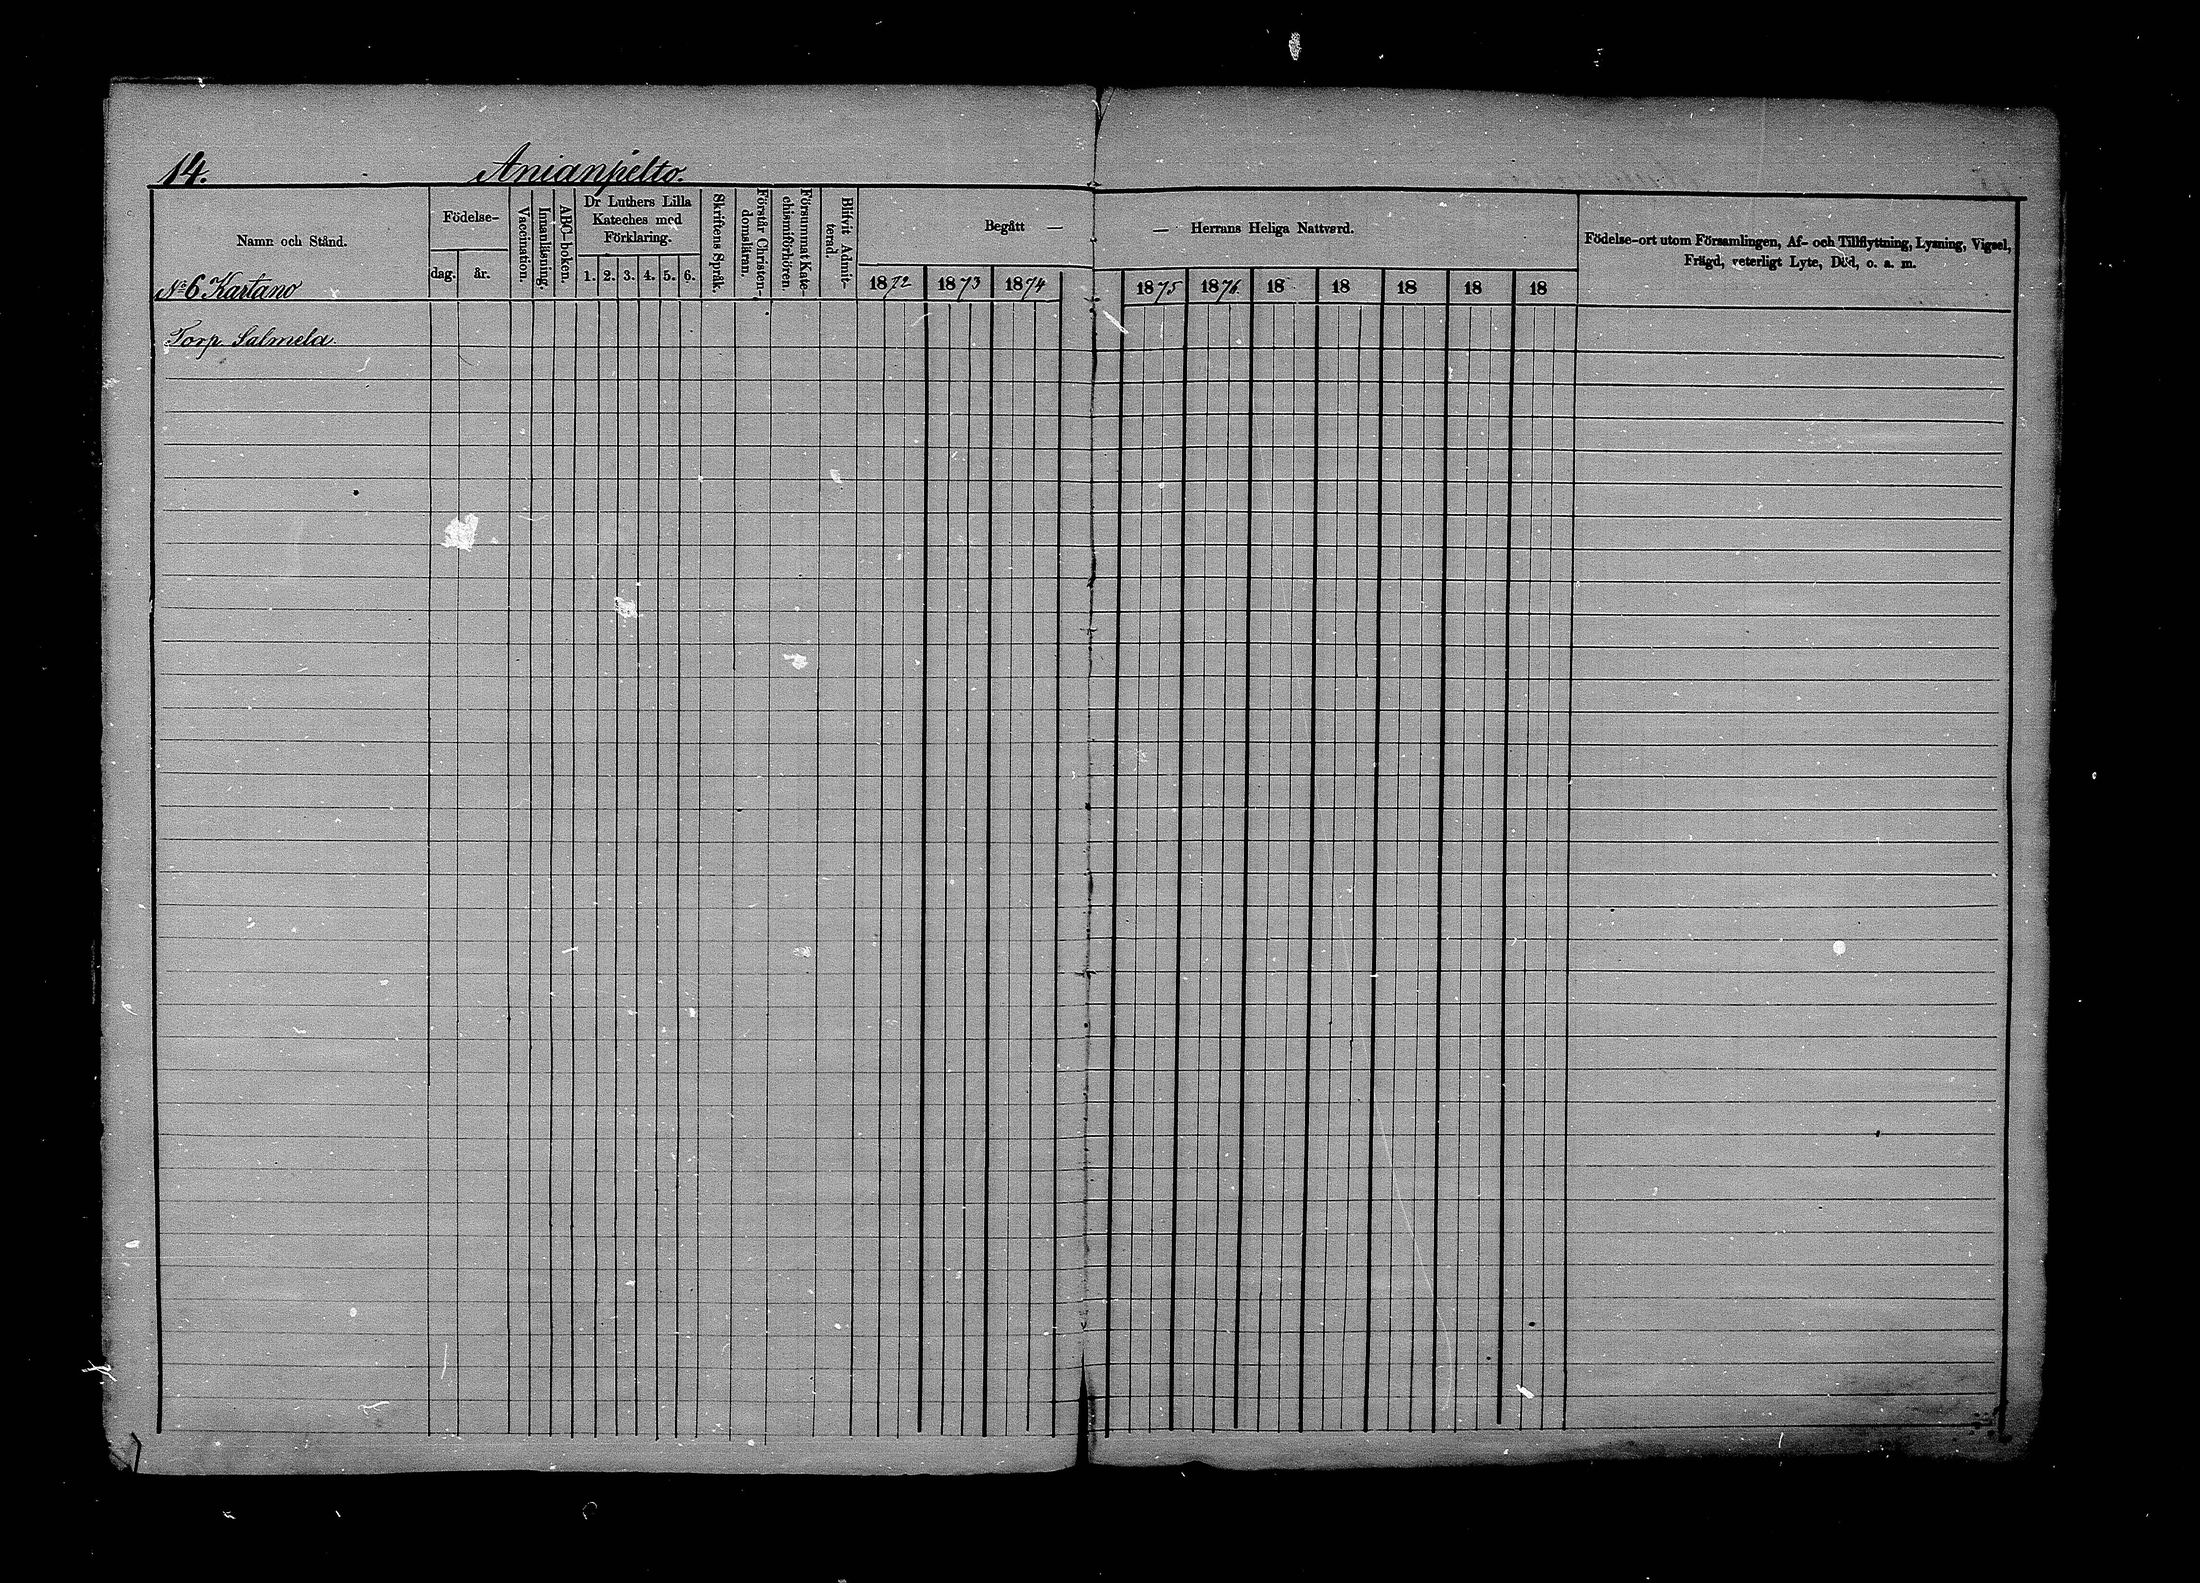 14.
Anianpelto.
Namn och Stånd.
Födelse-
dag.
år.
Vaccination.
Innanläsning.
ABC-boken.
Dr Luthers Lilla
Kateches med
Förklaring.
1. 2. 3. 4. 5. 6.
Skriftens Språk.
Förstår Christen-
domsläran.
Försummat Kate-
chismiförhören.
Blifvit Admit-
terad.
Begått —
— Herrans Heliga Nattvard.
1872 1873 1874 1875 1876. 18 18 18 18 18
Födelse-ort utom Församlingen, Af- och Tillflyttning, Lysning, Vigsel,
Frägd, veterligt Lyte, Död, o. s. m.
№ 6 Kartano
Torp Salmela.